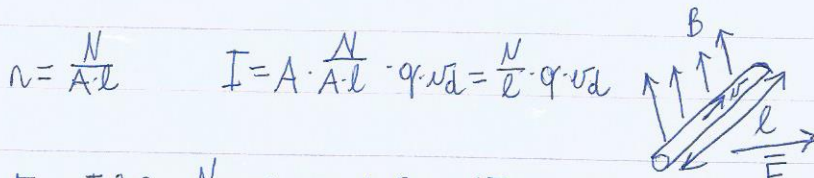 n = N/(A·l)  I = A · N/(A·l) · q · vd = N/l · q · vd
B
v
l
F
N